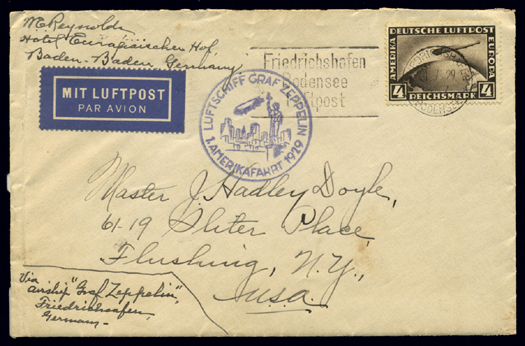 M. Reynolds
Hotel Europäischen Hof,
Baden-Baden, Germany
MIT LUFTPOST
PAR AVION
LUFTSCHIFF GRAF ZEPPELIN
1. AMERIKAFAHRT 1929
Friedrichshafen
Bodensee
Luftpost
DEUTSCHE LUFTPOST
AMERIKA
EUROPA
4 REICHSMARK 4
Master J. Hadley Doyle,
61-19 Place,
Flushing, N.Y.,
U.S.A.
Via
airship "Graf Zeppelin",
Friedrichshafen,
Germany-